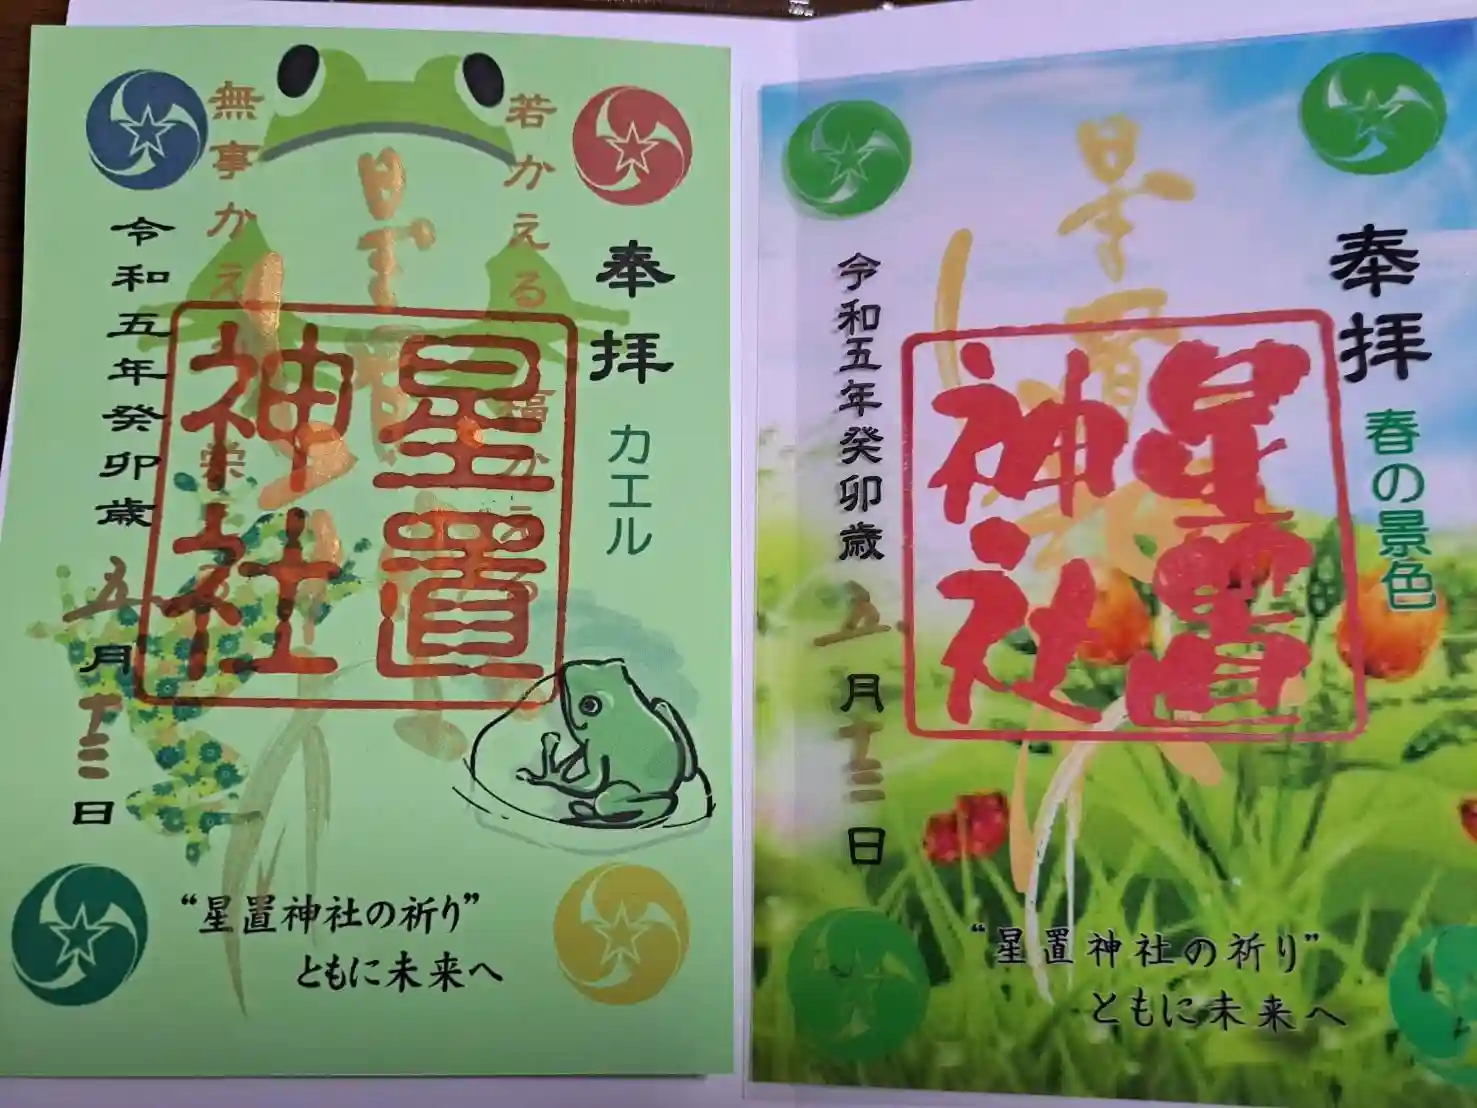 奉拝
カエル
若かえる
福かえる
無事かえる
栄
星置
星置神社
令和五年癸卯歳
五月十三日
“星置神社の祈り”
ともに未来へ
奉拝
春の景色
星置
星置神社
令和五年癸卯歳
五月十三日
“星置神社の祈り”
ともに未来へ